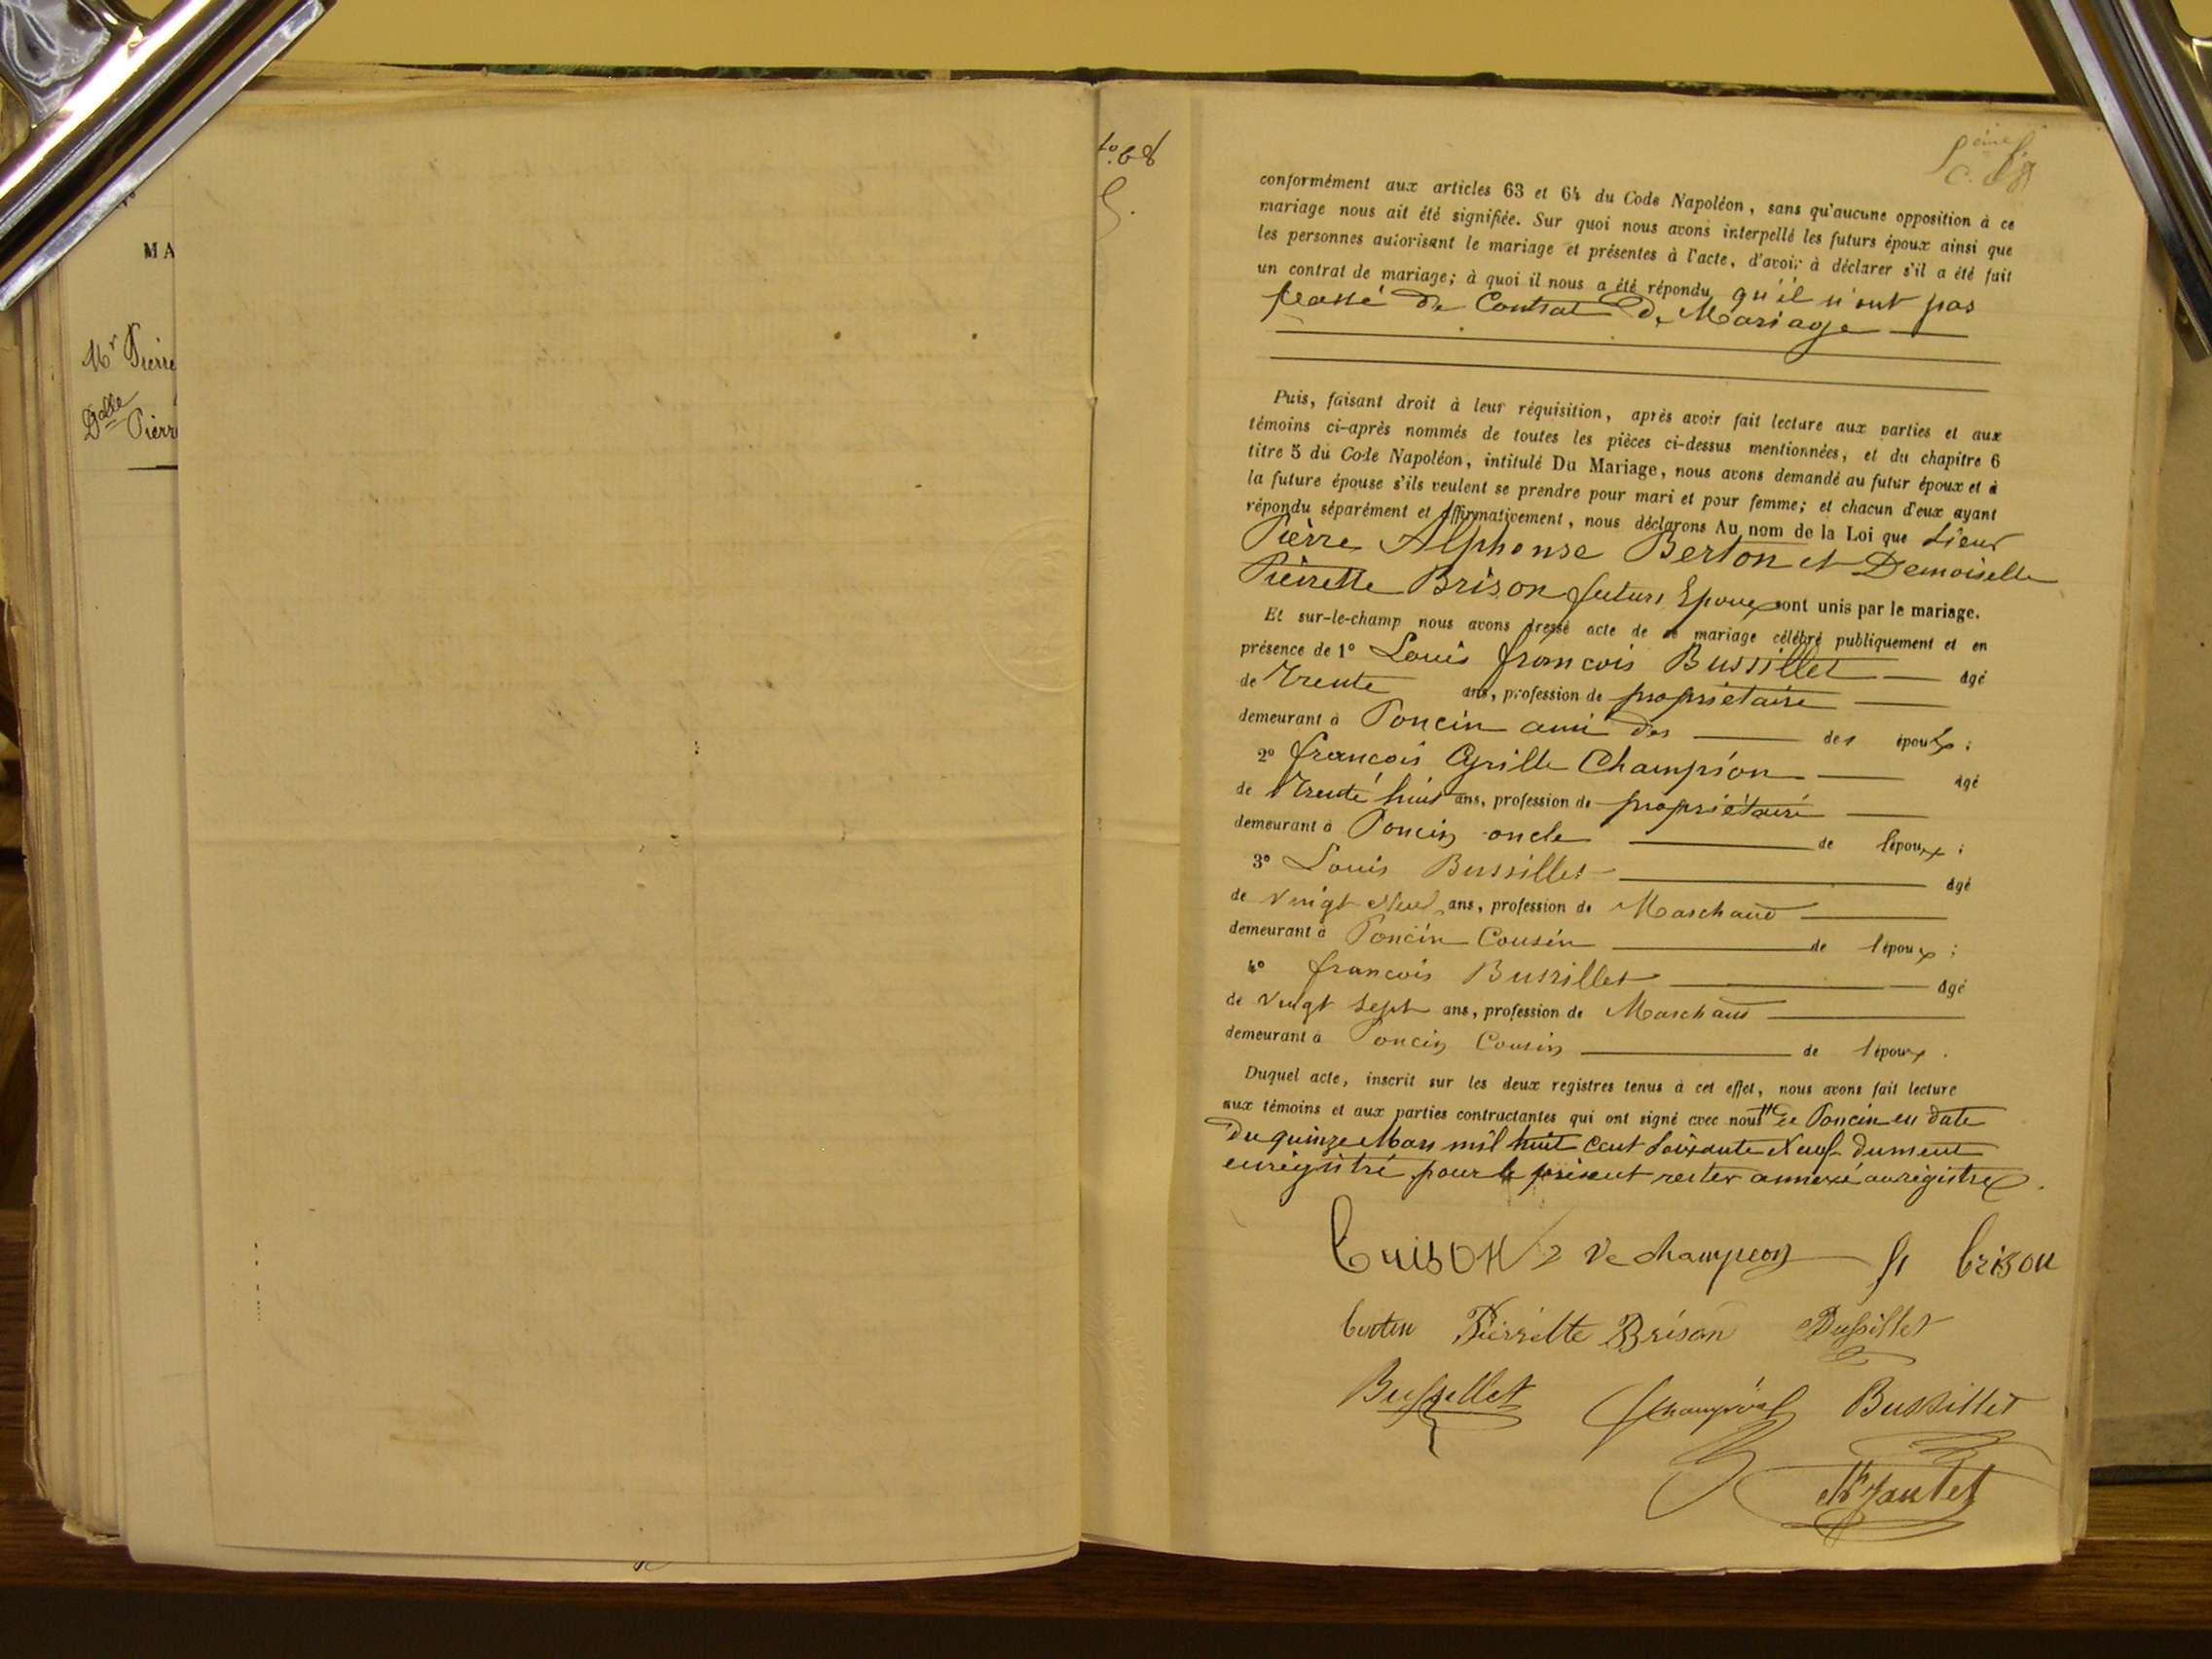 MA
Mr Pierre
Dlle Pierr
fo. 68
conformément aux articles 63 et 64 du Code Napoléon, sans qu'aucune opposition à ce
mariage nous ait été signifiée. Sur quoi nous avons interpellé les futurs époux ainsi que
les personnes autorisant le mariage et présentes à l'acte, d'avoir à déclarer s'il a été fait
un contrat de mariage; à quoi il nous a été répondu qu'il n'ont pas
passé de Contrat de Mariage
Puis, faisant droit à leur réquisition, après avoir fait lecture aux parties et aux
témoins ci-après nommés de toutes les pièces ci-dessus mentionnées, et du chapitre 6
titre 5 du Code Napoléon, intitulé Du Mariage, nous avons demandé au futur époux et à
la future épouse s'ils veulent se prendre pour mari et pour femme; et chacun d'eux ayant
répondu séparément et affirmativement, nous déclarons Au nom de la Loi que Sieur
Pièrre Alphonse Berton et Demoiselle
Pièrrette Brison futurs Epoux sont unis par le mariage.
Et sur-le-champ nous avons dressé acte de ce mariage célébré publiquement et en
présence de 1° Louis françois Bussillet âgé
de Trente ans, profession de propriétaire
demeurant à Poncin ami des des époux;
2° françois Cyrille Champion âgé
de Trente huit ans, profession de propriétaire
demeurant à Poncin oncle de l'époux;
3° Louis Bussillet âgé
de vingt Neuf ans, profession de Marchand
demeurant à Poncin Cousin de l'époux;
4° françois Bussillet âgé
de vingt sept ans, profession de Marchand
demeurant à Poncin Cousin de l'époux.
Duquel acte, inscrit sur les deux registres tenus à cet effet, nous avons fait lecture
aux témoins et aux parties contractantes qui ont signé avec nous de Poncin en date
du quinze Mars mil huit cent soixante Neuf dument
enrégistré pour le présent rester annexé au régistre.
brison Ve champion fs brison
berton Pièrrette Brison Bussillet
Bussillet Champion Bussillet